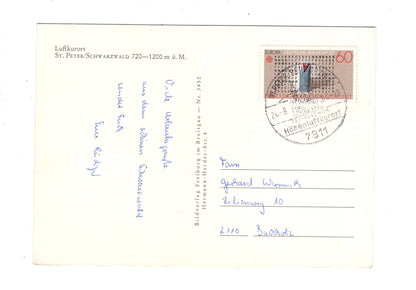 Luftkurort
St. Peter/Schwarzwald 720—1200 m ü. M.
Viele Urlaubsgrüße
aus dem schönen Schwarzwald
sendet Euch
Euer Rüdiger
Bildverlag Freiburg im Breisgau - Nr. 3452
Hermann-Herder-Str.
EUROPA
60
24-8
Höhenluftkurort
7811
Fam.
Gerhard
Lilienweg 10
2110 Buchholz